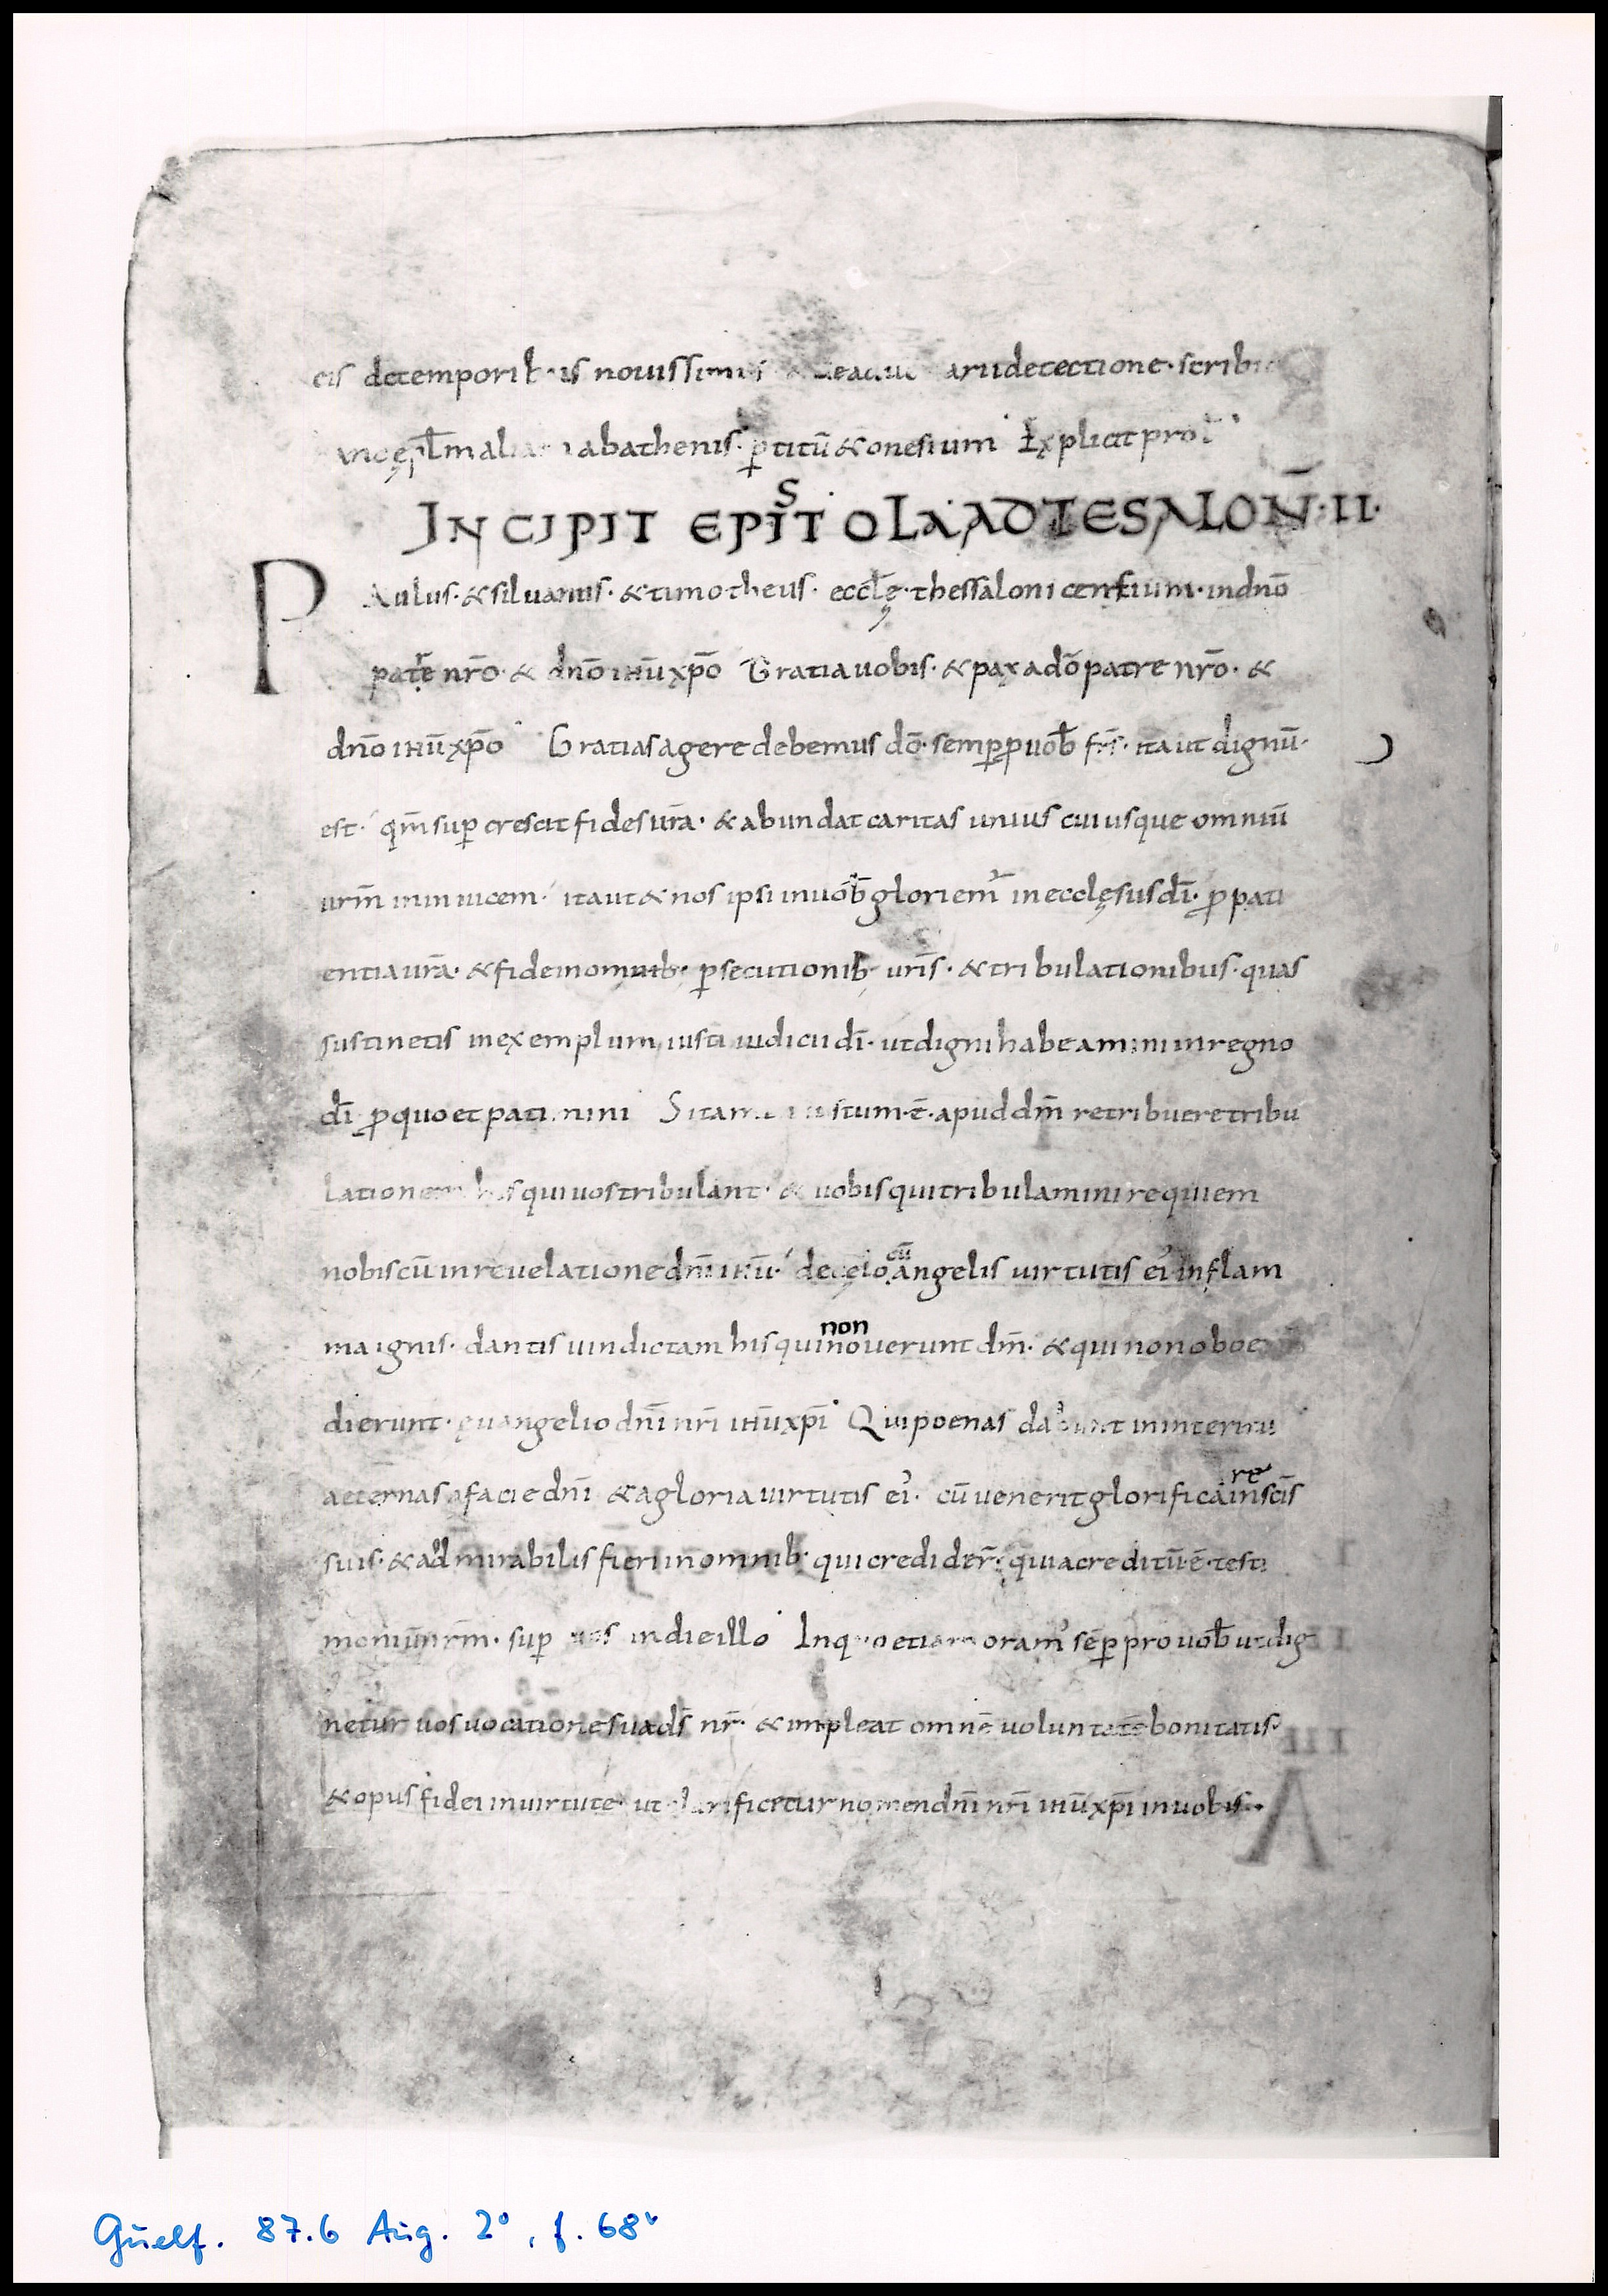 eis detemporib· is nouissimis detectione· scribit
hanc ępl̄m abathenis· ꝑ titū & onesium Explicit prol̄
INCIPIT EPIS̄TOLA AD TESALON̄·II·
PAulus· & siluanus· & timotheus· eccl̄ę· thessalonicensium· indn̄o
patre nr̄o· & dn̄o ihū xp̄o Gratia uobis· & pax adō patre nr̄o· &
dn̄o ihū xp̄o Gratias agere debemus dō· semꝑ ꝓ uob̄ fr̄s· ita ut dignū·
est· qm̄ suꝑ crescit fides ur̄a· & abundat caritas unius cuiusque omniū
urm̄ in inuicem· ita ut & nos ipsi in uob̄ gloriem̉ in ecclęsiis dī· ꝓ pati
entia ur̄a· & fide in omnib· ꝑsecutionib· ur̄is· & tribulationibus· quas
sustinetis in exemplum iusti iudicii dī· ut digni habeamini in regno
dī ꝓ quo et patimini Si tam iustum· ē· apud dm̄ retribuere tribu
lationem his qui uos tribulant· & uobis qui tribulamini requiem
nobiscū in reuelatione dn̄i ihū· de cęlo cū angelis uirtutis eỉ in flam
ma ignis· dantis uindictam his qui non nouerunt dm̄· & qui non oboe
dierunt· ęuangelio dn̄i nr̄i ihū xp̄i Qui poenas dabunt in interitu
aeternas a facie dn̄i & a gloria uirtutis eỉ· cū uenerit glorificare in scīs
suis· & admirabilis fieri in omnib· qui credider̄· quia creditū· ē· testi
moniū nr̄m· suꝑ uos in die illo In quo etiam oram̉ sēꝑ pro uob̄ ut dig
netur uos uocatione sua ds̄ nr̄· & impleat omnē uoluntatē bonitatis·
& opus fidei in uirtute· ut clarificetur nomen dn̄i nr̄i ihū xp̄i in uobis·
Guelf. 87.6 Aug. 2°, f. 68ᵛ